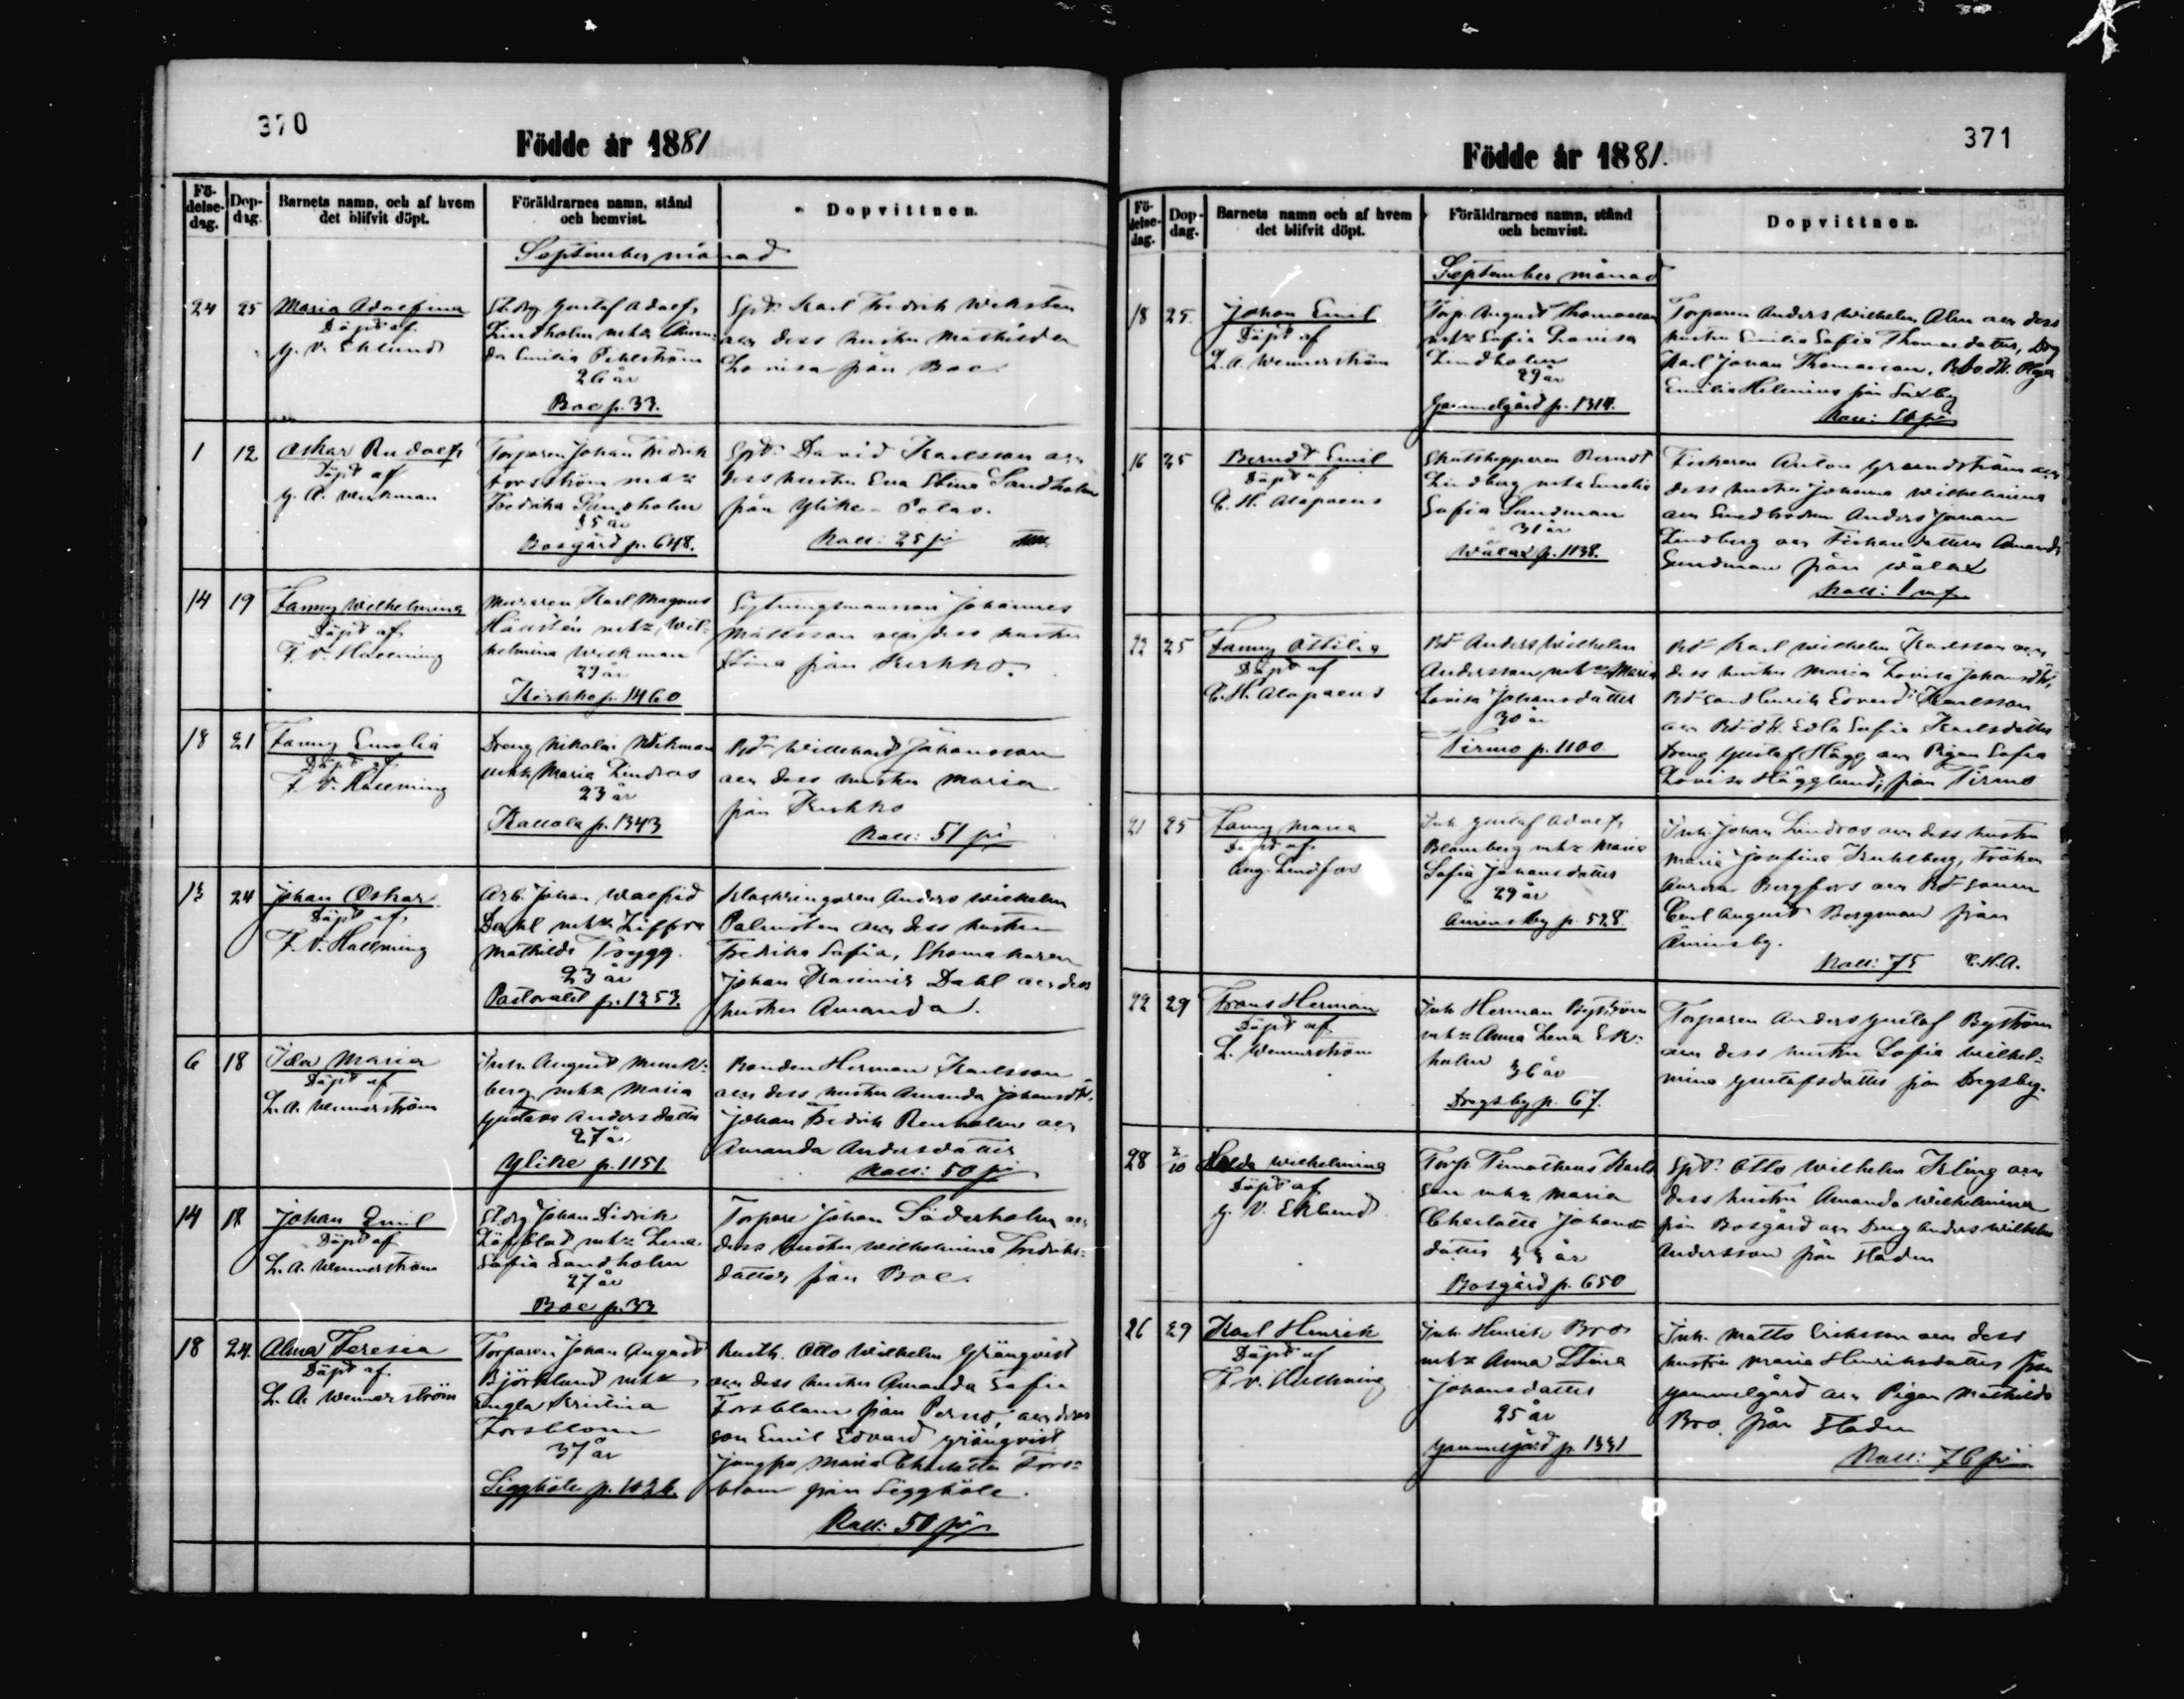 370
Födde år 1881
Fö-
delse-
dag.
Dop-
dag.
Barnets namn, och af hvem
det blifvit döpt.
Föräldrarnes namn, stånd
och hemvist.
Dopvittnen.
September månad
24 25
Maria Adolfina
Döpt af
G. V. Eklund
Gustaf Adolf
Lindholm
da Emilia Pihlström
26 år
Boe p. 33.
Karl Fredrik Wiksten
och dess hustru Mathilda
Lovisa från Boe
1 12
Oskar Rudolf
Döpt af
G. A. Wenkman
Torparen Johan Fredrik
Forsström
Fredrika Sandholm
35 år
Bosgård p. 648.
David Karlsson och
dess hustru Eva Stina Sandholm
från Ylike-
Koll: 25 pi
14 19
Fanny Wilhelmina
Döpt af
F. V. Hallming
Muraren Karl Magnus
Wil-
helmina Wickman
29 år
Kirkko p. 1460
Sytningsmannen Johannes
Mattsson och dess hustru
Stina från Kirkko.
18 21
Fanny Emelia
Döpt af
F. V. Hallming
Dreng Nikolai Wickman
Maria Lindroos
23 år
Kallola p. 1343
Willehard Johansson
och dess hustru Maria
från Kirkko
Koll: 51 pi
13 24
Johan Oskar
Döpt af
F. V. Hallming
Arb. Johan Walfrid
Dahl
Mathilda Trygg.
23 år
Pastoratet p. 1253.
Klockringaren Anders Wilhelm
Palmsten och dess hustru
Fredrika Sofia, Skomakaren
Johan Kasimir Dahl och dess
hustru Amanda.
6 18
Ida Maria
Döpt af
L. A. Wennerström
Inh. August Munck-
berg Maria
Gustava Andersdatter
27 år
Ylike p. 1151
Bonden Herman Karlsson
och dess hustru Amanda Johansdr,
Johan Fredrik Renholm och
Amanda Andersdatter
Koll: 50 pi
14 18
Johan Emil
Döpt af
L. A. Wennerström
Johan Didrik
Löfblad Lena
Sofia Sandholm
27 år
Boe p. 33
Torpare Johan Söderholm och
dess hustru Wilhelmina Fredriks-
datter från Boe.
18 24.
Alma Teresia
Döpt af
L. A. Wennerström
Torparen Johan August
Björklund
Engla Kristina
Forsblom
37 år
Siggböle p.
Rusth. Otto Wilhelm Grönqvist
och dess hustru Amanda Sofia
Forsblom från Perno, och deras
son Emil Edvard Grönqvist
jungfru Maria Charlotta Fors-
blom från Siggböle.
Koll: 50 pi
371
Födde år 1881.
Fö-
delse-
dag.
Dop-
dag.
Barnets namn och af hvem
det blifvit döpt.
Föräldrarnes namn, stånd
och hemvist.
Dopvittnen.
September månad
18 25.
Johan Emil
Döpt af
L. A. Wennerström
Torp. August Thomasson
Sofia Lovisa
Lindholm
29 år
Gammelgård p. 1314.
Torparen Anders Wilhelm Alm och dess
hustru Emilia Sofia Thomasdatter, Dreng
Karl Johan Thomasson, Olga
Emilia Helenius från Saxby
16 25
Berndt Emil
Döpt af
C. H. Alopaeus
Skutskepparen Berndt
Lindberg Emelie
Sofia Sundman
31 år
Wålax p. 1138.
Fiskaren Anton Grandström och
dess hustru Johanna Wilhelmina
och Anders Johan
Lindberg och Amanda
Sundman från Wålax
Koll: 1 mk
22 25
Fanny Ottilia
Döpt af
C. H. Alopaeus
Anders Wilhelm
Andersson Maria
Lovisa Johansdatter
30 år
Tirmo p. 1100.
Karl Wilhelm Karlsson och
dess hustru Maria Lovisa Johansdr,
Henrik Edvard Karlsson
och Edla Sofia Karlsdatter
Dreng Gustaf Hägg och Pigan Sofia
Lovisa Hägglund, från Tirmo
21 25
Fanny Maria
Döpt af
Aug. Lindfors
Inh. Gustaf Adolf
Blomberg Maria
Sofia Johansdatter
29 år
Aminsby p. 528.
Inh. Johan Lindros och dess hustru
Maria Josefina Kuhlberg, Fröken
Aurora Bergfors och
Carl August Borgman från
Äminsby.
Koll: 75 C. H. A.
22 29
Frans Herman
Döpt af
L. Wennerström
Inh Herman Byström
Anna Lena Ek-
holm 36 år
Dregsby p. 67.
Torparen Anders Gustaf Byström
och dess hustru Sofia Wilhel-
mina Gustafsdatter från Dregsby.
28 2/10
Hulda Wilhelmina
Döpt af
G. V. Eklund
Torp. Timotheus Karls-
son Maria
Charlotta Johans-
datter 33 år
Bosgård p. 650
Otto Wilhelm Kling och
dess hustru Amanda Wilhelmina
från Bosgård och Dreng Anders Wilhelm
Andersson från Staden
26 29
Karl Henrik
Döpt af
F. V. Hallming
Inh. Henrik Bro
Anna Stina
Johansdatter
25 år
Gammelgård p. 1331
Inh. Matts Eriksson och dess
hustru Maria Henriksdatter från
Gammelgård och Pigan Mathilda
Bro från Staden
Koll: 76 pi